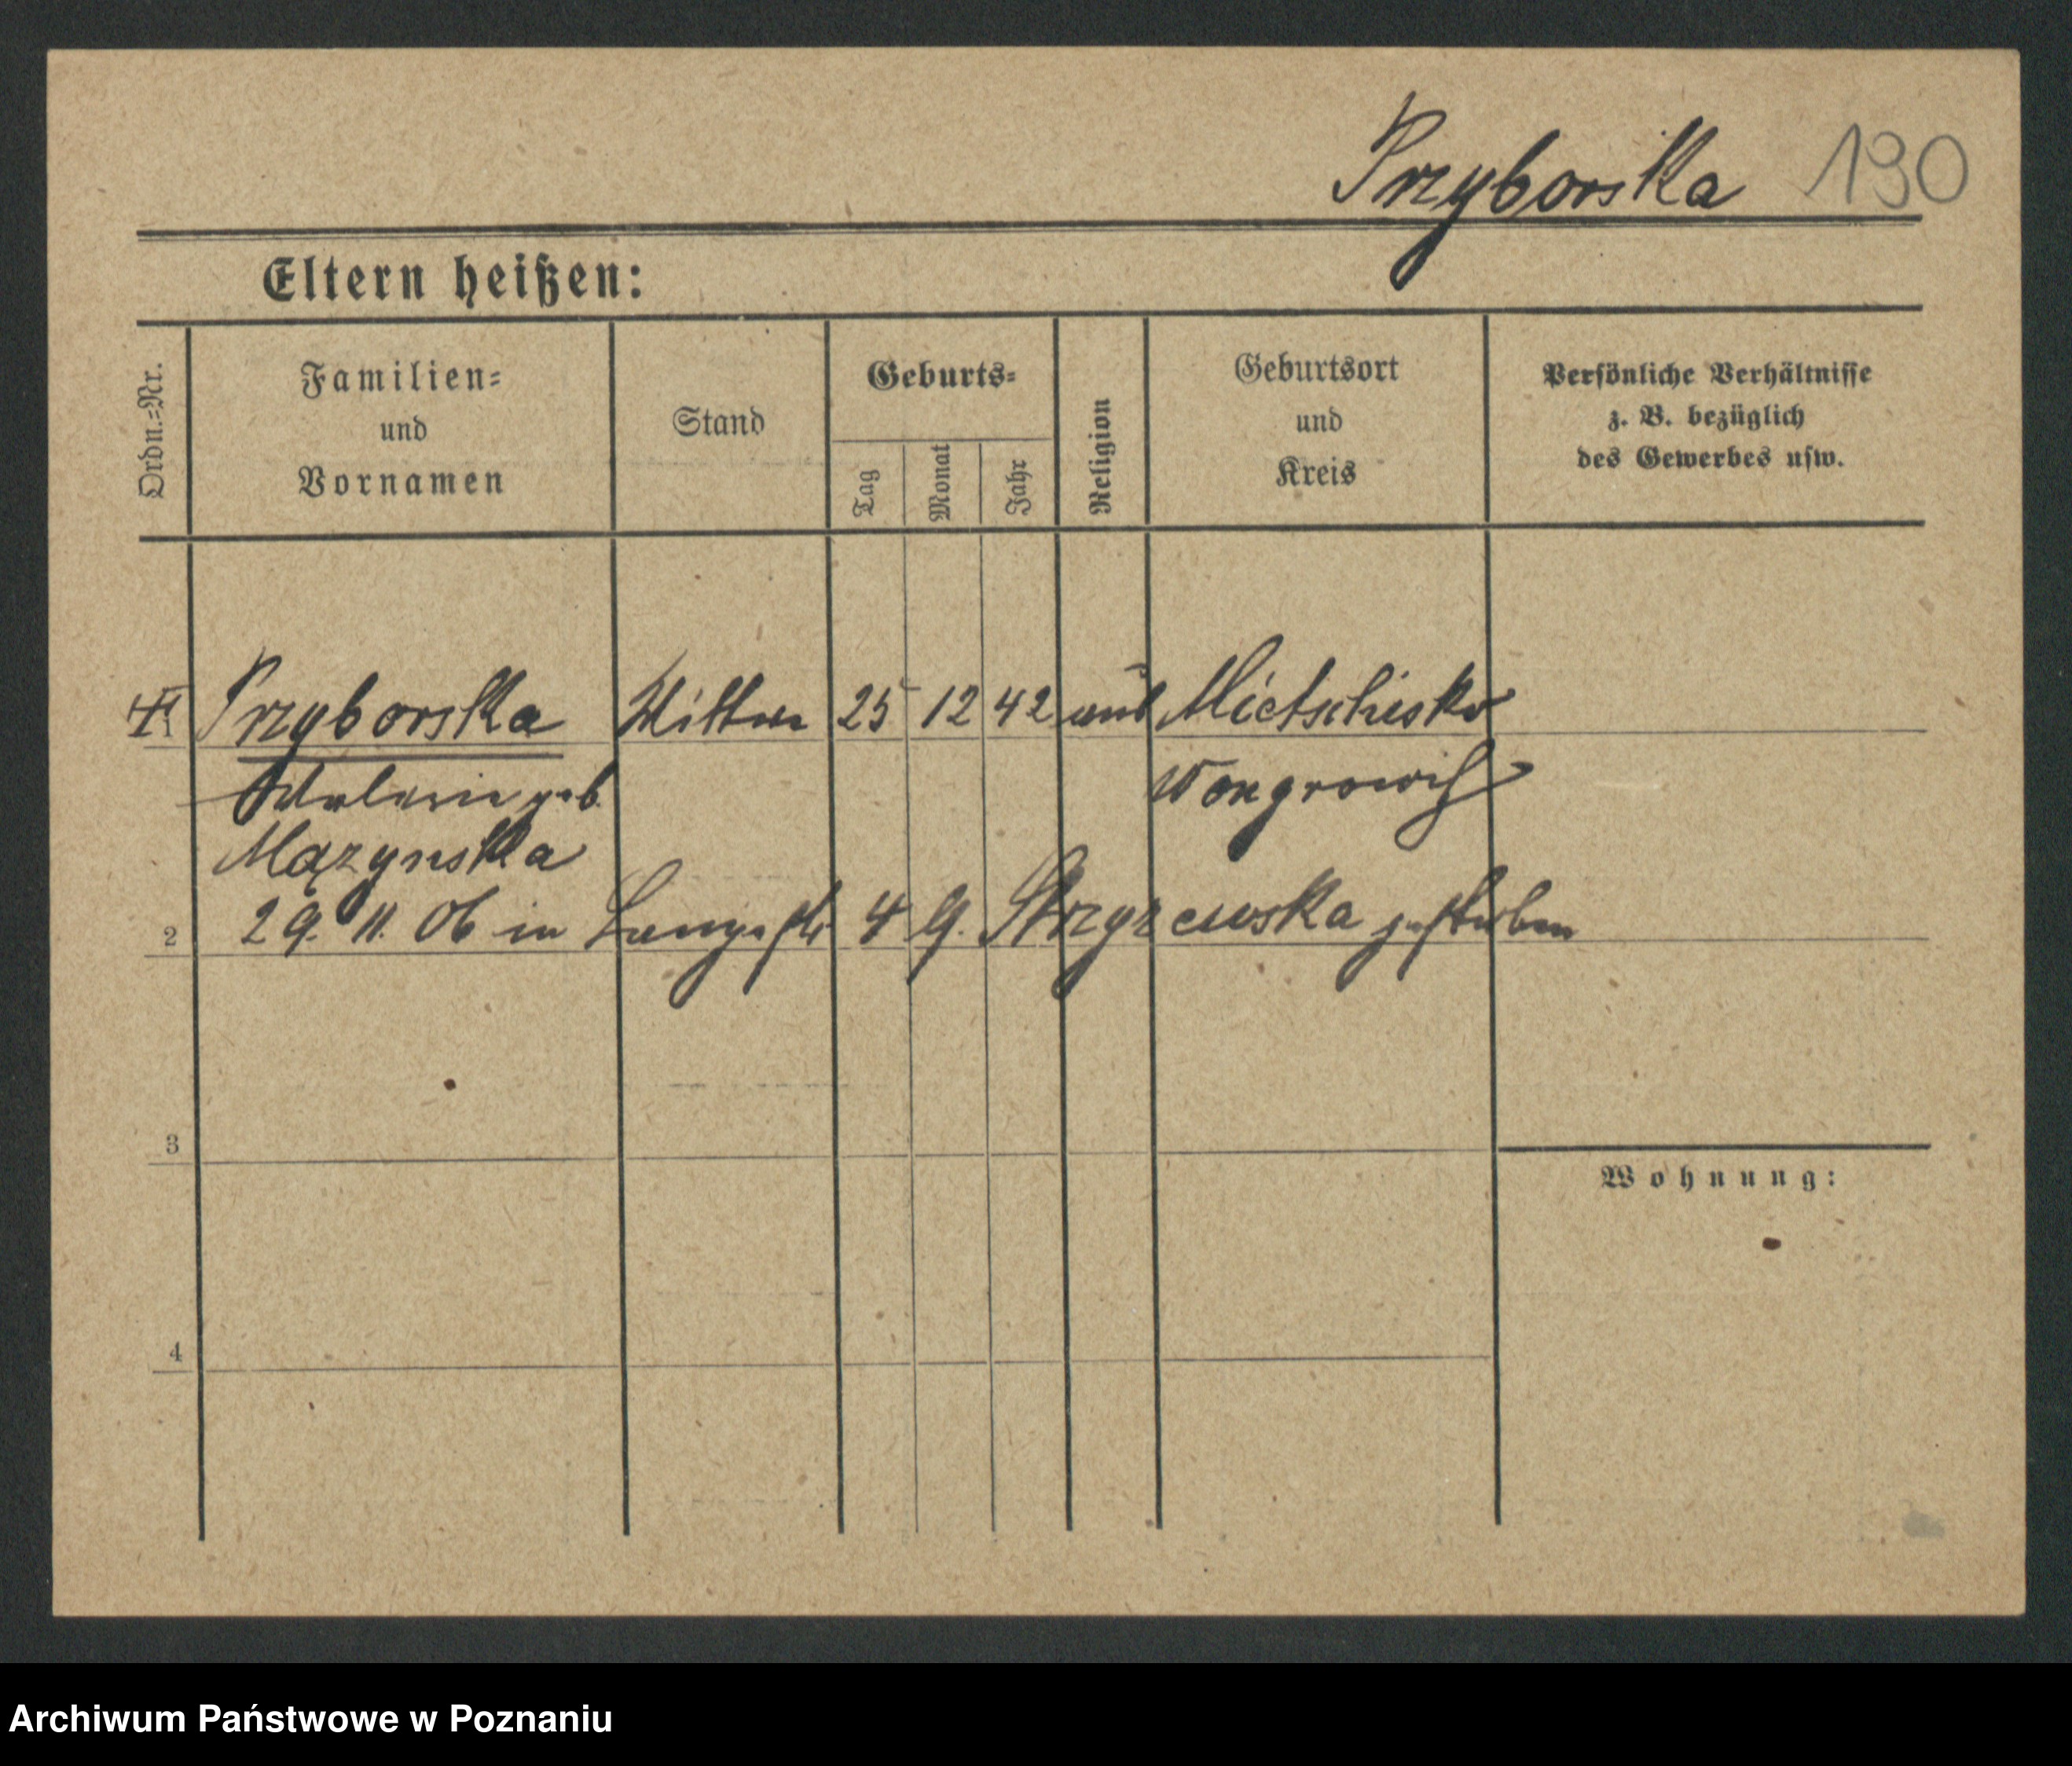 Przyborska 190
Eltern heißen:
Ordn.=Nr.
Familien=
und
Vornamen
Stand
Geburts=
Tag
Monat
Jahr
Religion
Geburtsort
und
Kreis
Persönliche Verhältnisse
z. B. bezüglich
des Gewerbes usw.
Przyborska Wittwe 25 12 42 Mietschisko
Valerie geb. Wongrowitz
Mązynska
2 29. 11. 06 in Langestr 4 b. Strzyzewska gestorben
3
Wohnung:
4
Archiwum Państwowe w Poznaniu